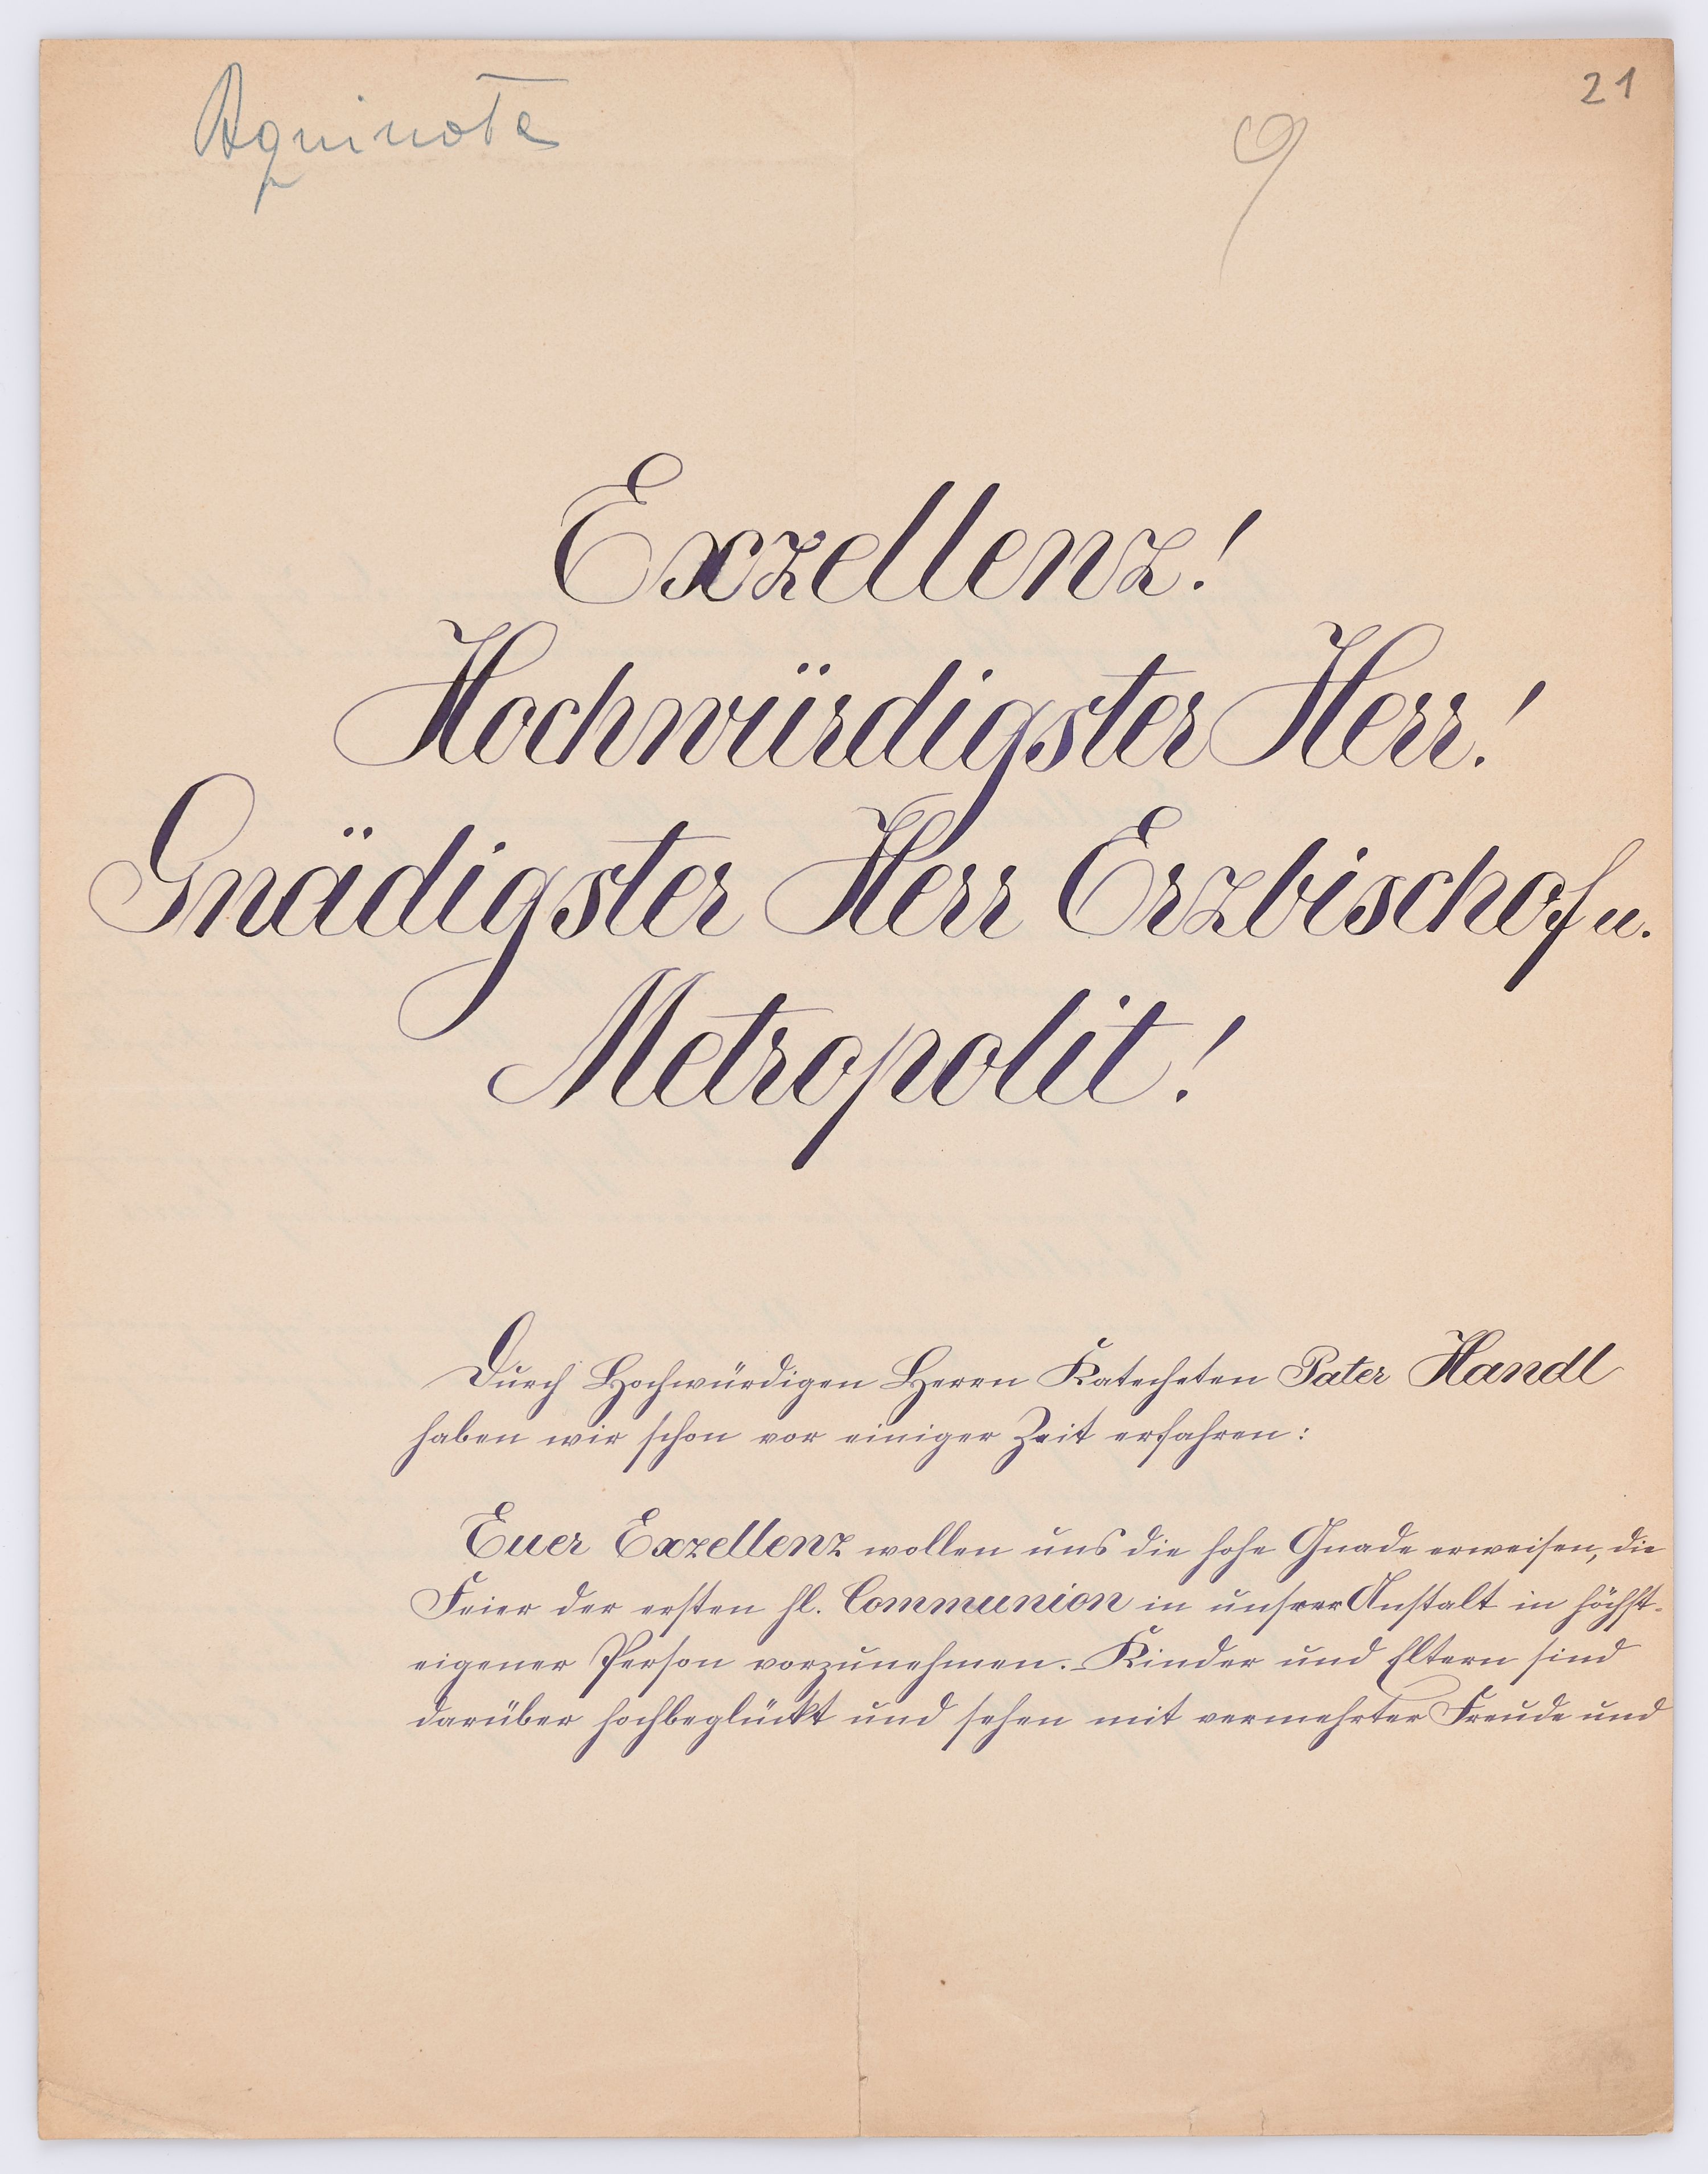 Aquinota
21
9
Exzellenz!
Hochwürdigster Herr!
Gnädigster Herr Erzbischof u.
Metropolit!
Durch Hochwürdigen Herrn Katecheten Pater Handl
haben wir schon vor einiger Zeit erfahren:
Euer Exzellenz wollen uns die hohe Gnade erweisen, die
Feier der ersten hl. Communion in unsrer Anstalt in höchst-
eigener Person vorzunehmen. Kinder und Eltern sind
darüber hochbeglückt und sehen mit vermehrter Freude und